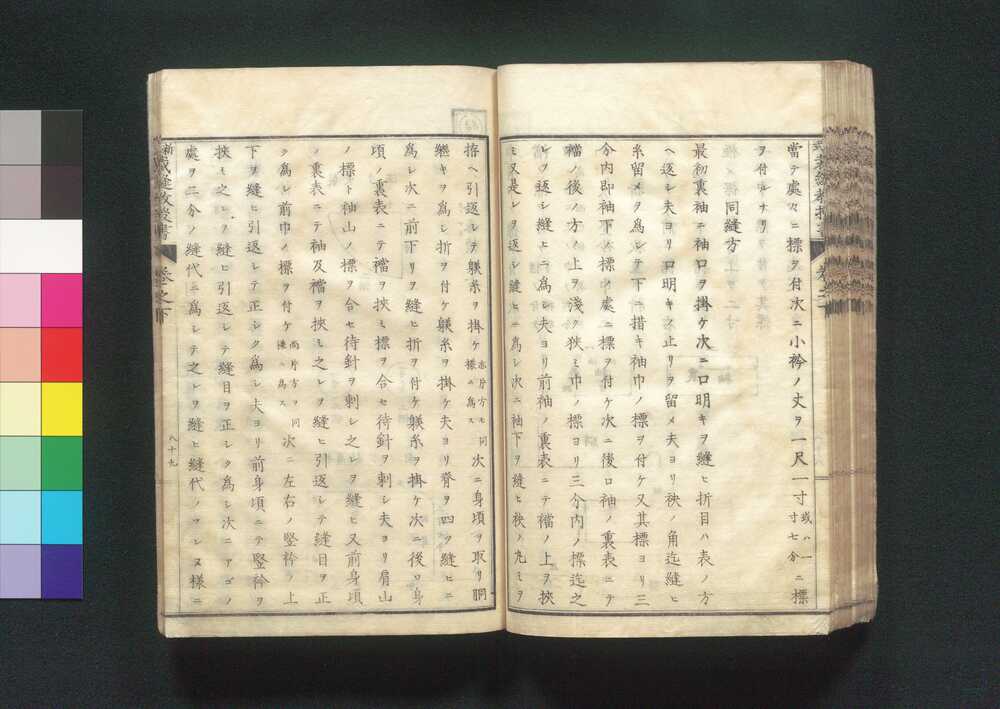 當テ處々ニ標ヲ付次ニ小衿ノ丈ヲ一尺一寸或ハ一寸七分ニ標
ヲ付ルナリ
同縫方
最初裏袖ニ袖口ヲ掛ケ次ニ口明キヲ縫ヒ折目ハ表ノ方
ヘ返シ夫ヨリ口明キノ止リヲ留メ夫ヨリ袂ノ角迄縫ヒ
糸留メヲ爲シテ下ニ措キ袖巾ノ標ヲ付ケ又其標ヨリ三
分内即袖下ノ標ノ處ニ標ヲ付ケ次ニ後ロ袖ノ裏表ニテ
襠ノ後ノ方ノ上ヲ淺ク狹ミ巾ノ標ヨリ三分内ノ標迄之
レヲ返シ縫ヒニ爲シ夫ヨリ前袖ノ裏表ニテ襠ノ上ヲ挾
ミ又是レヲ返シ縫ヒニ爲シ次ニ袖下ヲ縫ヒ袂ノ丸ミヲ
拵ヘ引返シテ躾糸ヲ掛ケ亦片方モ同樣ニ爲ス次ニ身頃ヲ取リ胴
繼キヲ爲シ折ヲ付ケ躾糸ヲ掛ケ夫ヨリ脊ヲ四ツ縫ヒニ
爲シ次ニ前下リヲ縫ヒ折ヲ付ケ躾糸ヲ掛ケ次ニ後ロ身
頃ノ裏表ニテ襠ヲ挾ミ標ヲ合セ待針ヲ刺シ夫ヨリ肩山
ノ標ト袖山ノ標ヲ合セ待針ヲ刺シ之レヲ縫ヒ又前身頃
ノ裏表ニテ袖及襠ヲ挾ミ之レヲ縫ヒ引返シテ縫目ヲ正
シク爲シ前巾ノ標ヲ付ケ尚片方ヲ同樣ニ爲ス次ニ左右ノ竪衿ノ上
下ヲ縫ヒ引返シテ正シク爲シ夫ヨリ前身頃ニテ竪衿ヲ
挾ミ之レヲ縫ヒ引返シテ縫目ヲ正シク爲シ次ニアゴノ
處ヲ二分ノ縫代ニ爲シテ之レヲ縫ヒ縫代ノツレヌ樣ニ
裁縫教授書
卷之下
八十九